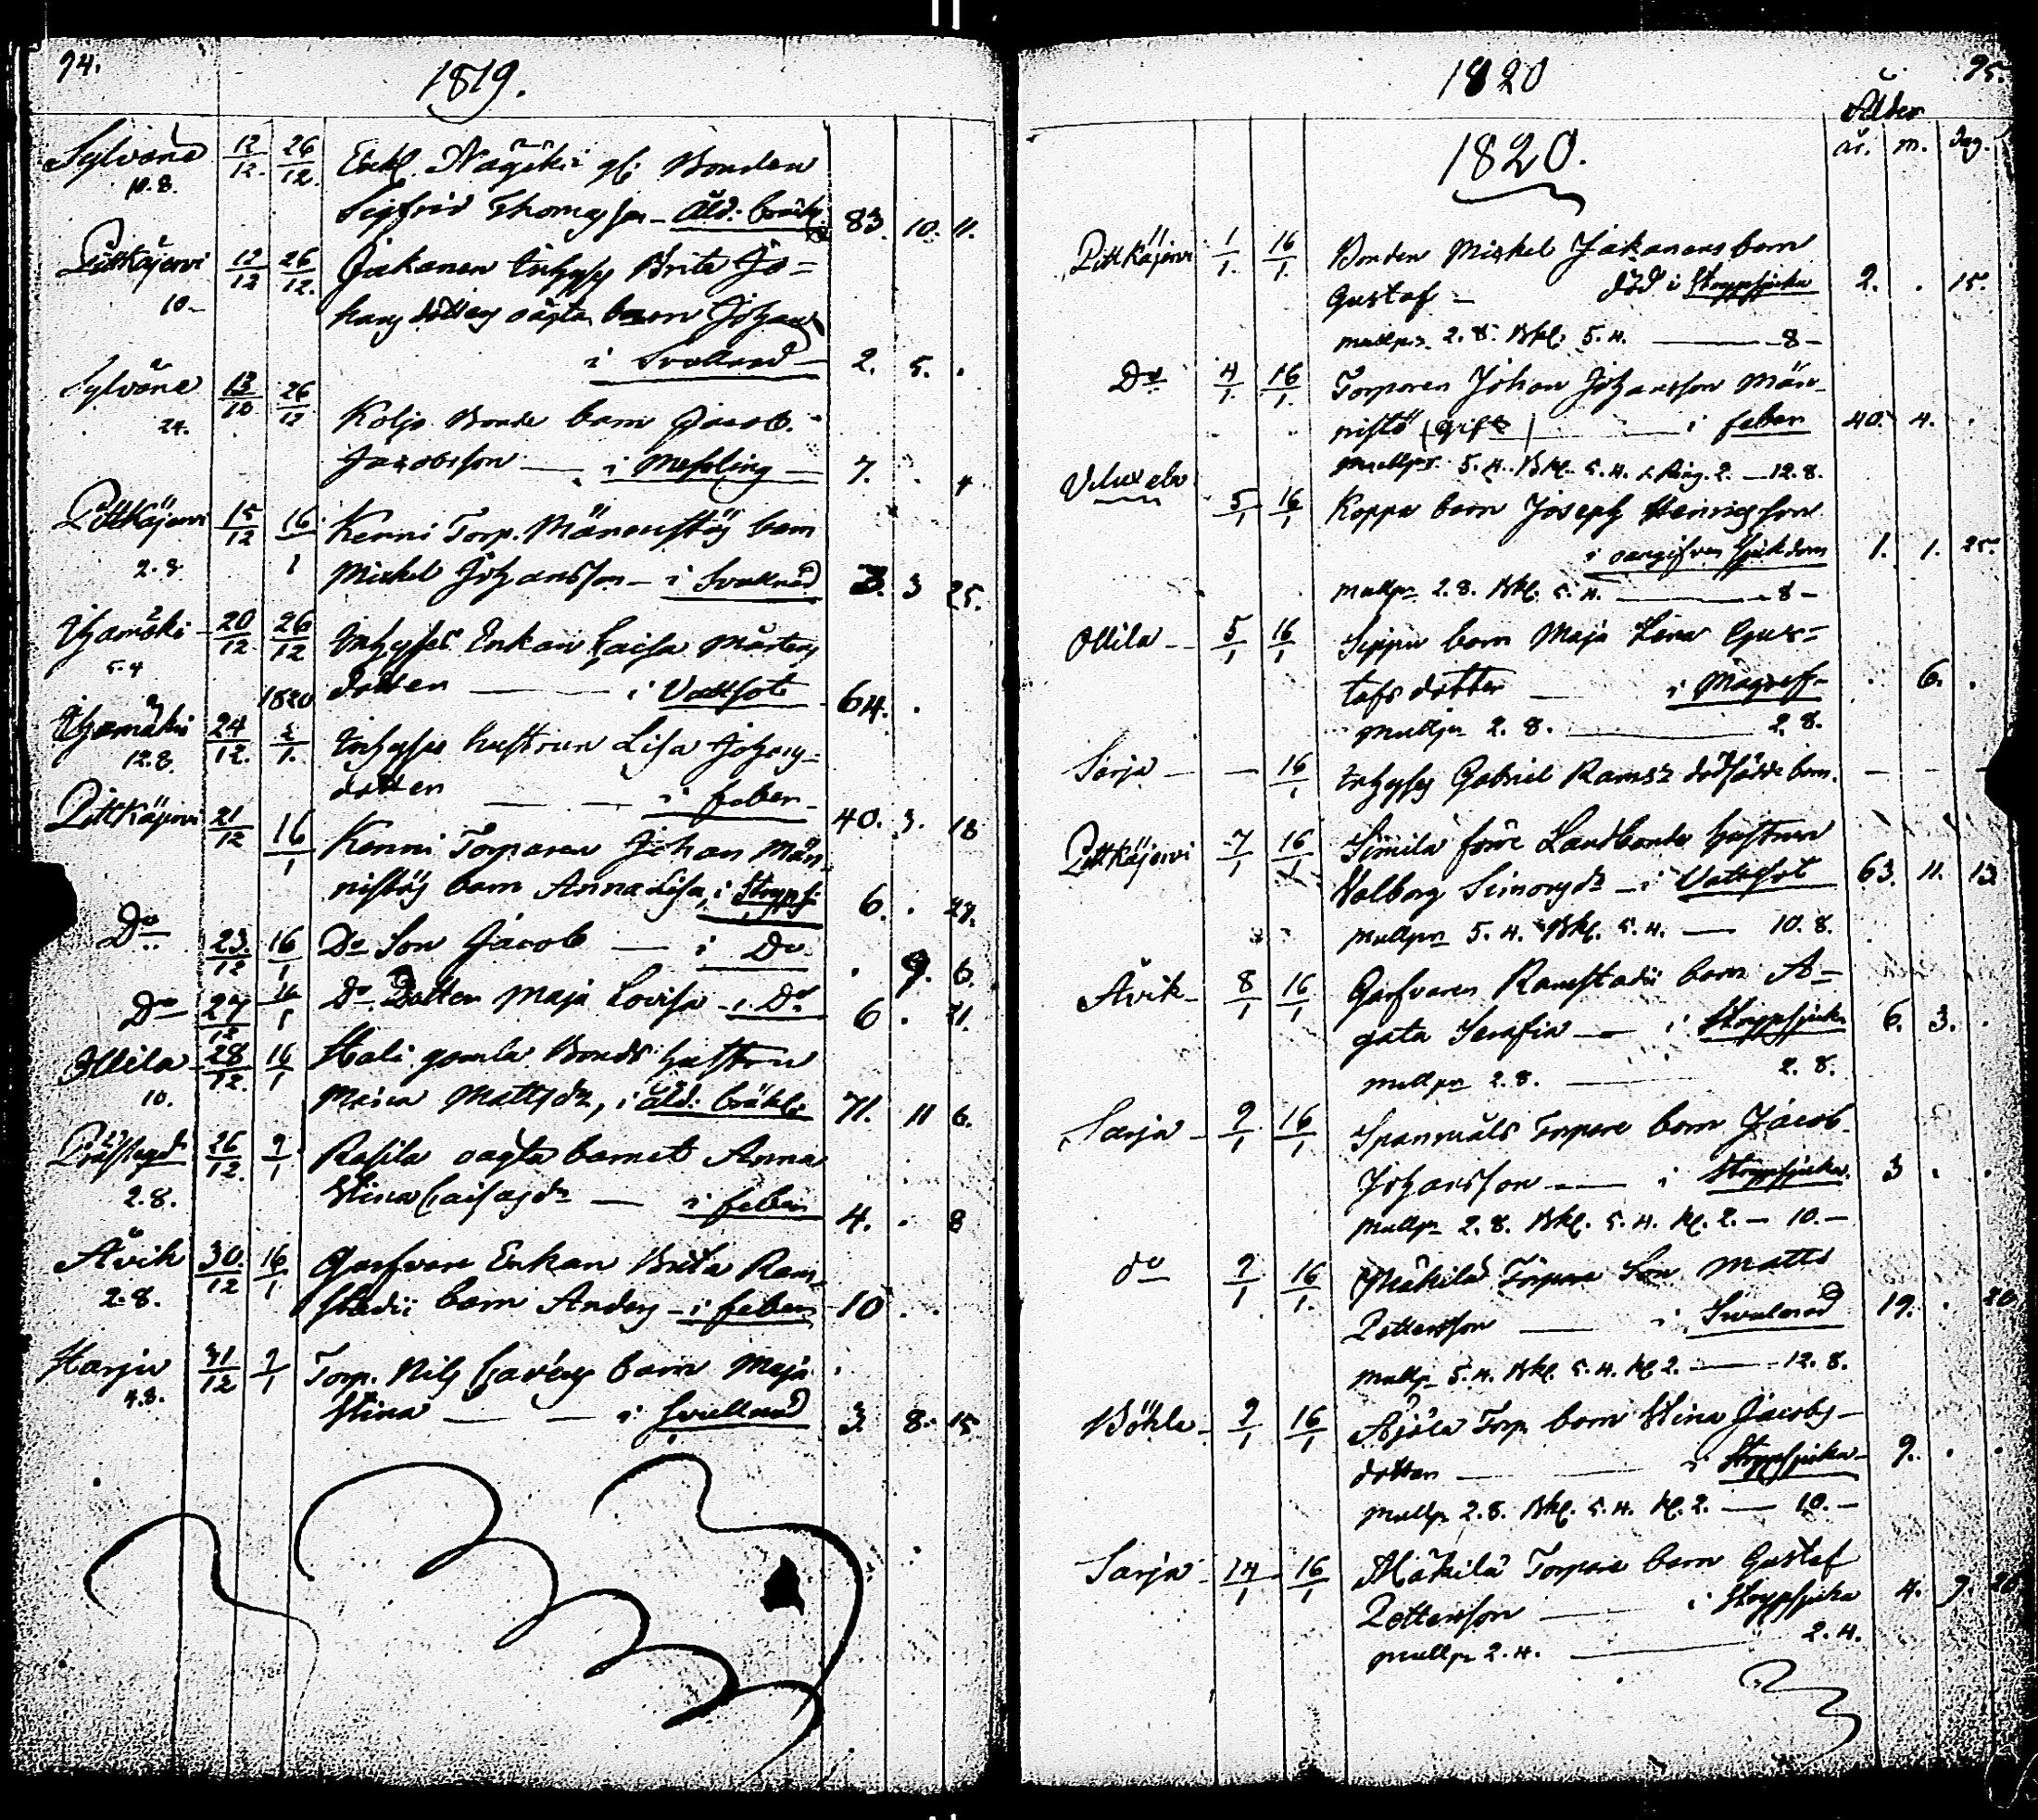 94.
1819.
Sylvänä 12/12. 26/12. Enkl. Nägäki gl. Bonden
10.8.
Sigfrid Thomasson - Åld: bräckl. 83. 10. 11.
Pittkäjervi 12/12 26/12. Jakanen Inhyses Brita Jo=
10.-
hans dotters oägta barn Johan
i Svullnad - 2. 5. .
Sylvänä 13/12 26/12
24.
Koljo Bonde barn Jacob
Jacobsson - i Messling - 7. . 4
Pittkäjervi 15/12 16/1 Kenni Torp. Männistös barn
2.8.
Mickel Johansson - i Svullnad 3. 3 25.
Yhämäki - 20/12 26/12 Inhyses Enkan Caisa Mårtens
5.4
dotter - i Vattsot 64. .
1820
Yhämäki 24/12. 2/1. Inhyses hustrun Lisa Johans=
12.8.
dotter - - i feber - 40. 3. 18
Pittkäjervi 21/12 16/1 Kenni Torparen Johan Män-
nistös barn Anna Lisa, i Koppsj: 6. . 27.
Do 23./12 16/1 Do Son Jacob - i Do . 9. 6.
Do 27/12 16/1 Do Dotter Maja Lovisa - i Do 6 . 21.
Ollila - 28/12. 16/1 Hali gamla Bonds hustru
10.
Maria Mattsdr, i åld: bräckl: 71. 11 6.
Prästegd 26/12. 9/1 Rasila oägta barnet Anna
2.8.
Stina Caisasdr - i feber 4. . 8
Åvik 30./12 16/1 Garfvare Enkan Brita Ram-
2.8.
stadii barn Anders - i feber - 10 . .
Harju 31/12 9/1 Torp. Nils Gavéns barn Maja
4.8.
Stina - - i Svullnad 3. 8. 15
1820
95.
Ålder
1820.
år. m. dag.
Pittkäjervi 1/1. 16/1. Bonden Mickel Jakanens barn
Gustaf - död i Koppsjuka 2. . 15.
mullpn. 2. 8. Bkl: 5. 4. - 8 -
Do 4/1. 16/1. Torparen Johan Johansson Män-
nistö (gift) - i feber 40. 4. .
mullpn. 5. 4. Bkl. 5. 4. 2. - 12. 8.
5/1 16/1 Koppa barn Joseph Henricsson
i oangifven sjukdom 1. 1. 25.
mullpn 2. 8. Bkl. 5. 4. - 8 -
Ollila - 5/1 16/1 Seppä barn Maja Lena Gus=
tafs dotter - i Magref - . 6. .
mullpn 2. 8. - 2. 8.
Sarja - - 16/1 Inhyses Gabriel Ramsz dödfödde barn. - - -
Pittkäjervi 7/1 16/1 Simila förre Landbonde hustrun
Valborg Simonsdr - i Vattsot 63. 11. 13
mullpn 5. 4. Bkl. 5. 4. - 10. 8.
Åvik - 8/1 16/1 Garfvaren Ramstadii barn A-
gata Serafia - i Koppsjuka 6. 3. .
mullpn 2. 8. - 2. 8.
Sarja - 9/1 16/1 Spannuåls Torpare barn Jacob
Johansson - i Koppsjuka. 3 . .
mullpn 2. 8. Bkl. 5. 4. kl. 2. - 10. -
do 9/1 16/1. Mäkilä Torpare Son Matts
Pettersson - i Svulnad 19. . 20
mullpn 5. 4. Bkl. 5. 4. kl 2. - 12. 8.
Böhle - 9/1 16/1 Äjälä Torp. barn Stina Jacobs-
dotter - i Koppsjuka - 9. . .
mullpn 2. 8. Bkl. 5. 4. kl. 2. - 10. -
Sarja - 14/1 16/1 Mäkilä Torpare barn Gustaf
Pettersson - i Koppsjuka 4. 9.
mullpn 2. 4. - 2. 4.